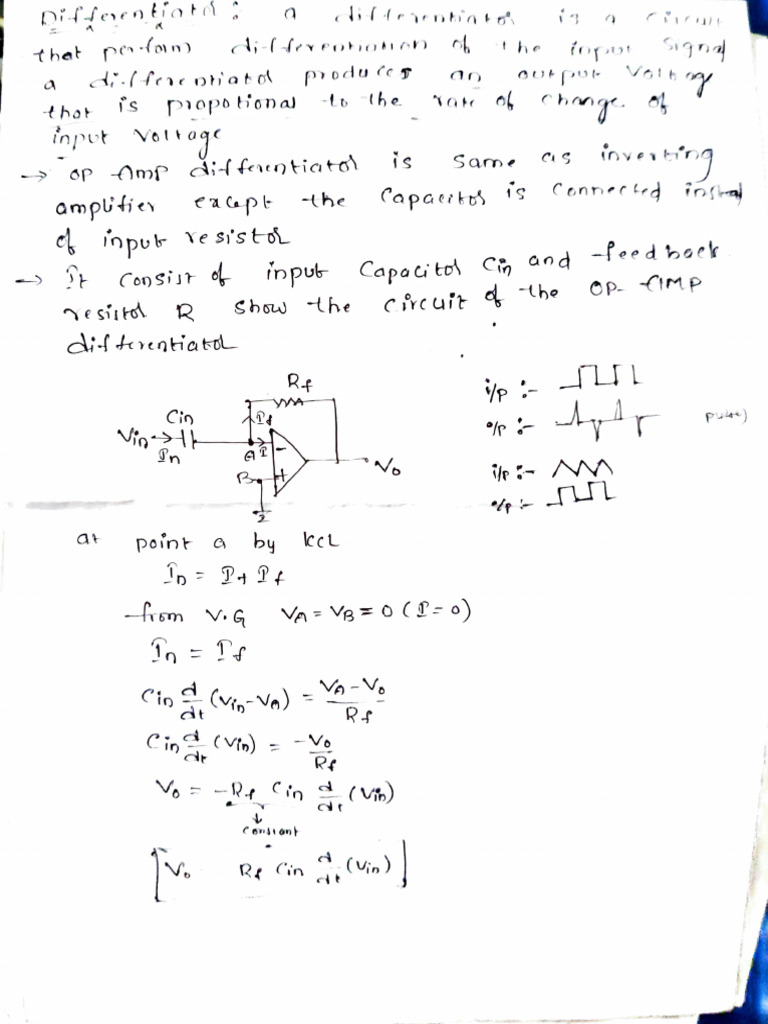 Differentiator : a differentiator is a circuit
that perform differentiation of the input signal
a differentiatol produces an output voltage
that is propotional to the rate of change of
input voltage
→ OP Amp differentiatol is same as inverting
amplifier except the capacitor is connected
of input resistor
→ It consist of input capacitol Cin and feedback
resistol R show the circuit of the OP-AMP
differentiatol
Rf
Cin
If
Vin →
In
A I
-
B
+
Vo
i/p :-
o/p :-
i/p :-
o/p :-
at point a by KCL
In = I + If
from V.G VA = VB = 0 (I = 0)
In = If
Cin d/dt (Vin - VA) = VA - Vo / Rf
Cin d/dt (Vin) = -Vo / Rf
Vo = -Rf Cin d/dt (Vin)
↓
constant
[Vo Rf Cin d/dt (Vin)]